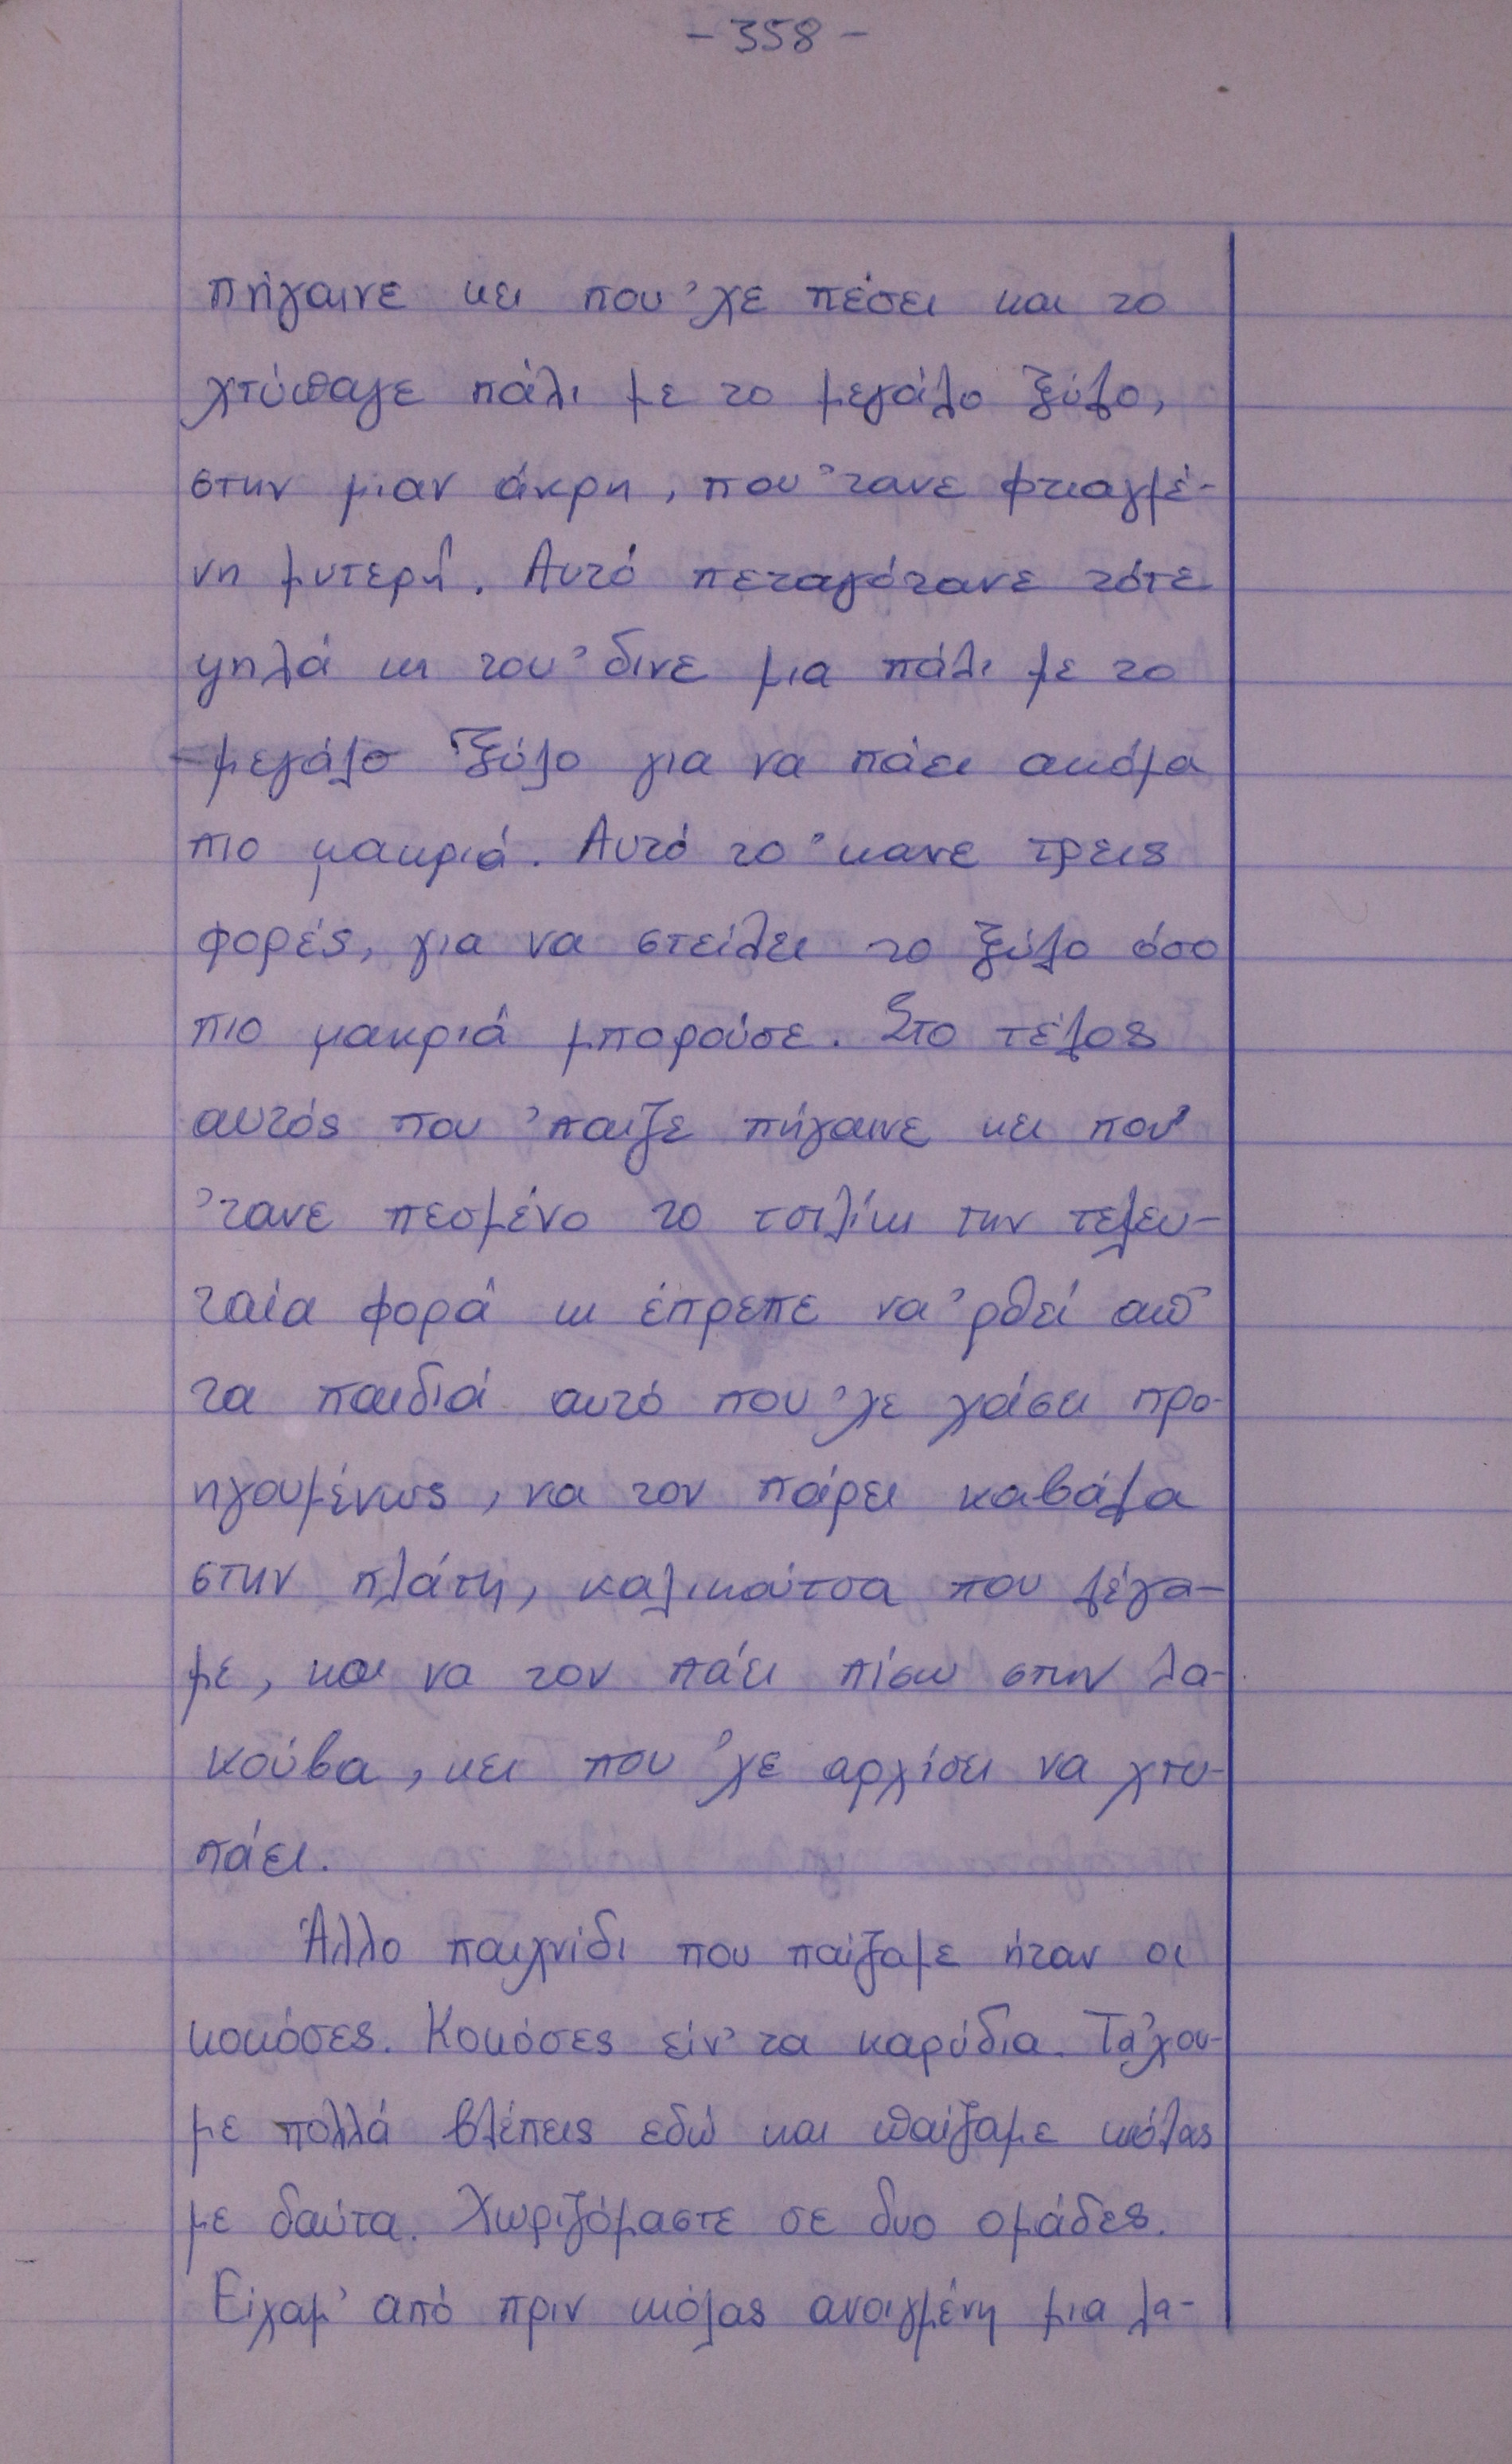 - 358 -
πήγαινε κει που 'χε πέσει και το
χτύπαγε πάλι με το μεγάλο ξύλο,
στην μιαν άκρη, που 'τανε φτιαγμέ-
νη μυτερή. Αυτό πεταγότανε τότε
ψηλά κι του 'δινε μια πάλι με το
μεγάλο ξύλο για να πάει ακόμα
πιο μακριά. Αυτό το 'κανε τρεις
φορές, για να στείλει το ξύλο όσο
πιο μακριά μπορούσε. Στο τέλος
αυτός που 'παιζε πήγαινε κει που
'τανε πεσμένο το τσιλίκι την τελευ-
ταία φορά κι έπρεπε να 'ρθεί απ'
τα παιδιά αυτό που 'χε χάσει προ-
ηγουμένως, να τον πάρει καβάλα
στην πλάτη, καλικούτσα που λέγα-
με, και να τον πάει πίσω στην λα-
κούβα, κει που 'χε αρχίσει να χτυ-
πάει.
Άλλο παιχνίδι που παίζαμε ήταν οι
κοκόσες. Κοκόσες είν' τα καρύδια. Τα 'χου-
με πολλά βλέπεις εδώ και παίζαμε κιόλας
με δαύτα. Χωριζόμαστε σε δυο ομάδες.
Είχαμ' από πριν κιόλας ανοιγμένη μια λα-